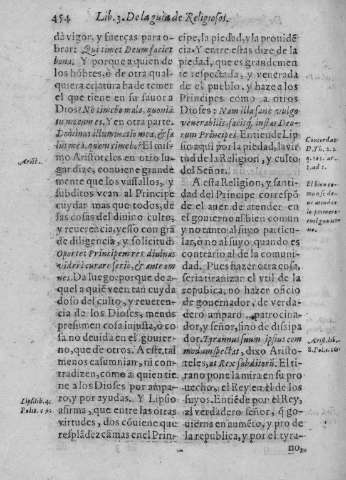 454 Lib. 3. De la guia de Religiosos.
da vigor, y fuerças para o-
brar: Qui timet Deum faciet
bona. Y porque a quien de
los hőbres, ò de otra qual-
quiera criatura ha de temer
el que tiene en su fauor a
Dios: No timebo mala, quoniã
tu mecum es, Y en otra parte.
Dominus illuminatio mea, & sa
lus mea, quem timebo? El mis-
mo Aristoteles en otro lu-
gar dize, conuiene grande
mente que los vassallos, y
subditos vean al Principe
cuydar mas que todos, de
las cosas del diuino culto,
y reuerencia, y esso con grã
de diligencia, y solicitud:
Oportet Principem res diuinas
videri curare serio, & ante om
nes. Da luego: porque de a-
quel a quiē ven tan cuyda
doso del culto, y reueren-
cia de los Dioses, menos
presumen cosa injusta, ò co
sa no deuida en el gouier-
no, que de otros. A este, tal
menos calumnian, ni con-
tradizen, como à quien tie
ne a los Dioses por ampa-
ro, y por ayudas. Y Lipsio
afirma, que entre las otras
virtudes, dos cōuiene que
resplādezcā mas en el Prin-
cipe, la piedad, y la prouidē
cia. Y entre estas dize de la
piedad, que es grandemen
te respectada, y venerada
de el pueblo, y haze a los
Principes como a otros
Dioses: Nam illa sanè vulgo
venerabiles facit, & instar Deo-
rum Principes. Entiende Lip
sio aqui por la piedad, la vir
tud de la Religion, y culto
del Señor.
A esta Religion, y santi-
dad del Principe correspō
de el auer de atender en
el gouierno al biē comun
y no tanto al suyo particu-
lar, ò no al suyo quando es
contrario al de la comuni-
dad. Pues hazer otra cosa,
seria tiranizar el vtil de la
republica, no hazer oficio
de gouernador, de verda-
dero amparo patrocina-
dor, y señor, sino de dissipa
dor. Tyrannus suum ipsius com
modum spectat, dixo Aristo-
teles, at Rex subditorū. El ti-
rano pone la mira en su pro
uecho, el Rey en el de los
suyos. Entiēde por el Rey,
al verdadero señor, q̃ go-
uierna en aumēto, y pro de
la republica, y por el tyra-
no,
Arist.
Lipsi lib. 4.
Polit. c. 9.
Arist. lib.
8. Poli. c. 10.